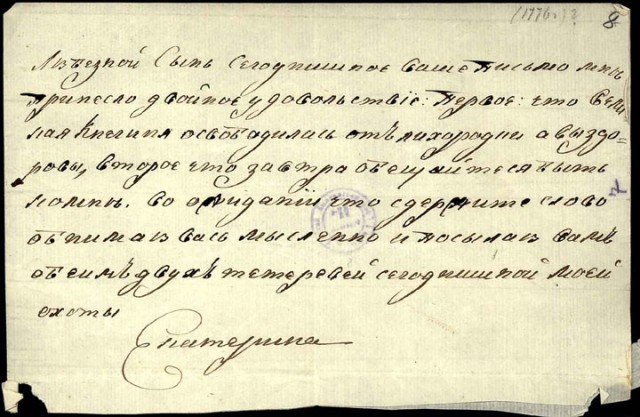 (1776.)? 8
Любезной Сынъ Сегоднишное ваше письмо мнѣ
принесло двойное удовольствіе: первое: что Вели
кая Княгиня освободилась отъ лихорадки а вы здо-
ровы, второе что завтра обещайтеся быть
ко мнѣ. Во ожиданіи что сдержите слово
обнимаю васъ мысленно и посылаю вамъ
обеимъ двухъ тетеревей сегоднишной моей
охоты
Екатерина